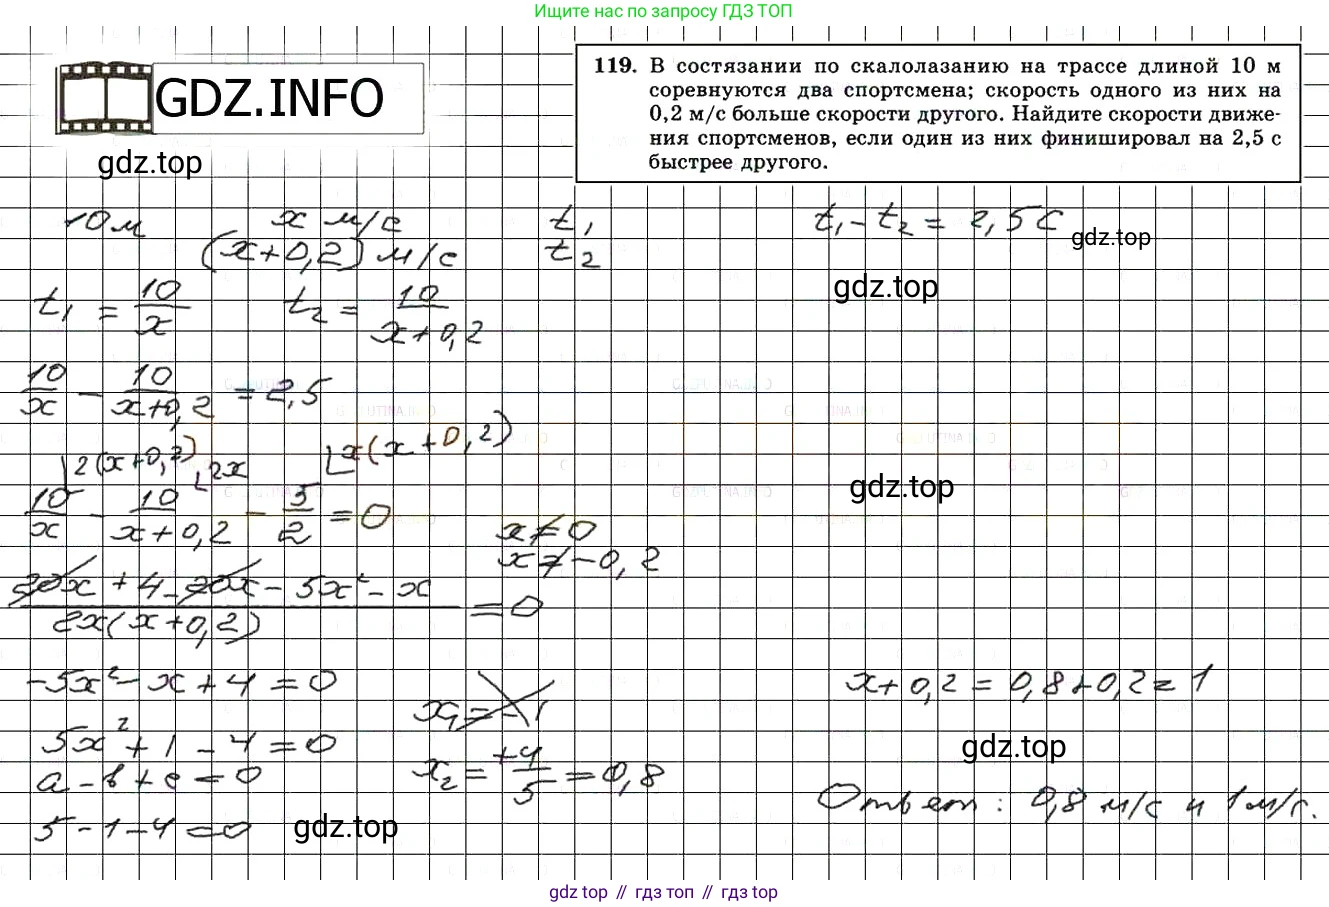 Ищите нас по запросу ГДЗ ТОП
GDZ.INFO
gdz.top
119. В состязании по скалолазанию на трассе длиной 10 м
соревнуются два спортсмена; скорость одного из них на
0,2 м/с больше скорости другого. Найдите скорости движе-
ния спортсменов, если один из них финишировал на 2,5 с
быстрее другого.
10м x м/с t₁ t₁ - t₂ = 2,5 с
(x+0,2) м/с t₂ gdz.top
gdz.top
t₁ = 10/x t₂ = 10/(x+0,2)
10/x - 10/(x+0,2) = 2,5
2(x+0,2) 2x x(x+0,2)
10/x - 10/(x+0,2) - 5/2 = 0
gdz.top
x ≠ 0
x ≠ -0,2
(20x + 4 - 20x - 5x² - x)/(2x(x+0,2)) = 0
-5x² - x + 4 = 0
x₁ = -1
x+0,2 = 0,8+0,2 = 1
5x² + 1 - 4 = 0
gdz.top
a - b + c = 0
x₂ = +4/5 = 0,8
Ответ: 0,8 м/с и 1 м/с.
5 - 1 - 4 = 0
gdz.top
gdz top // гдз топ // гдз top